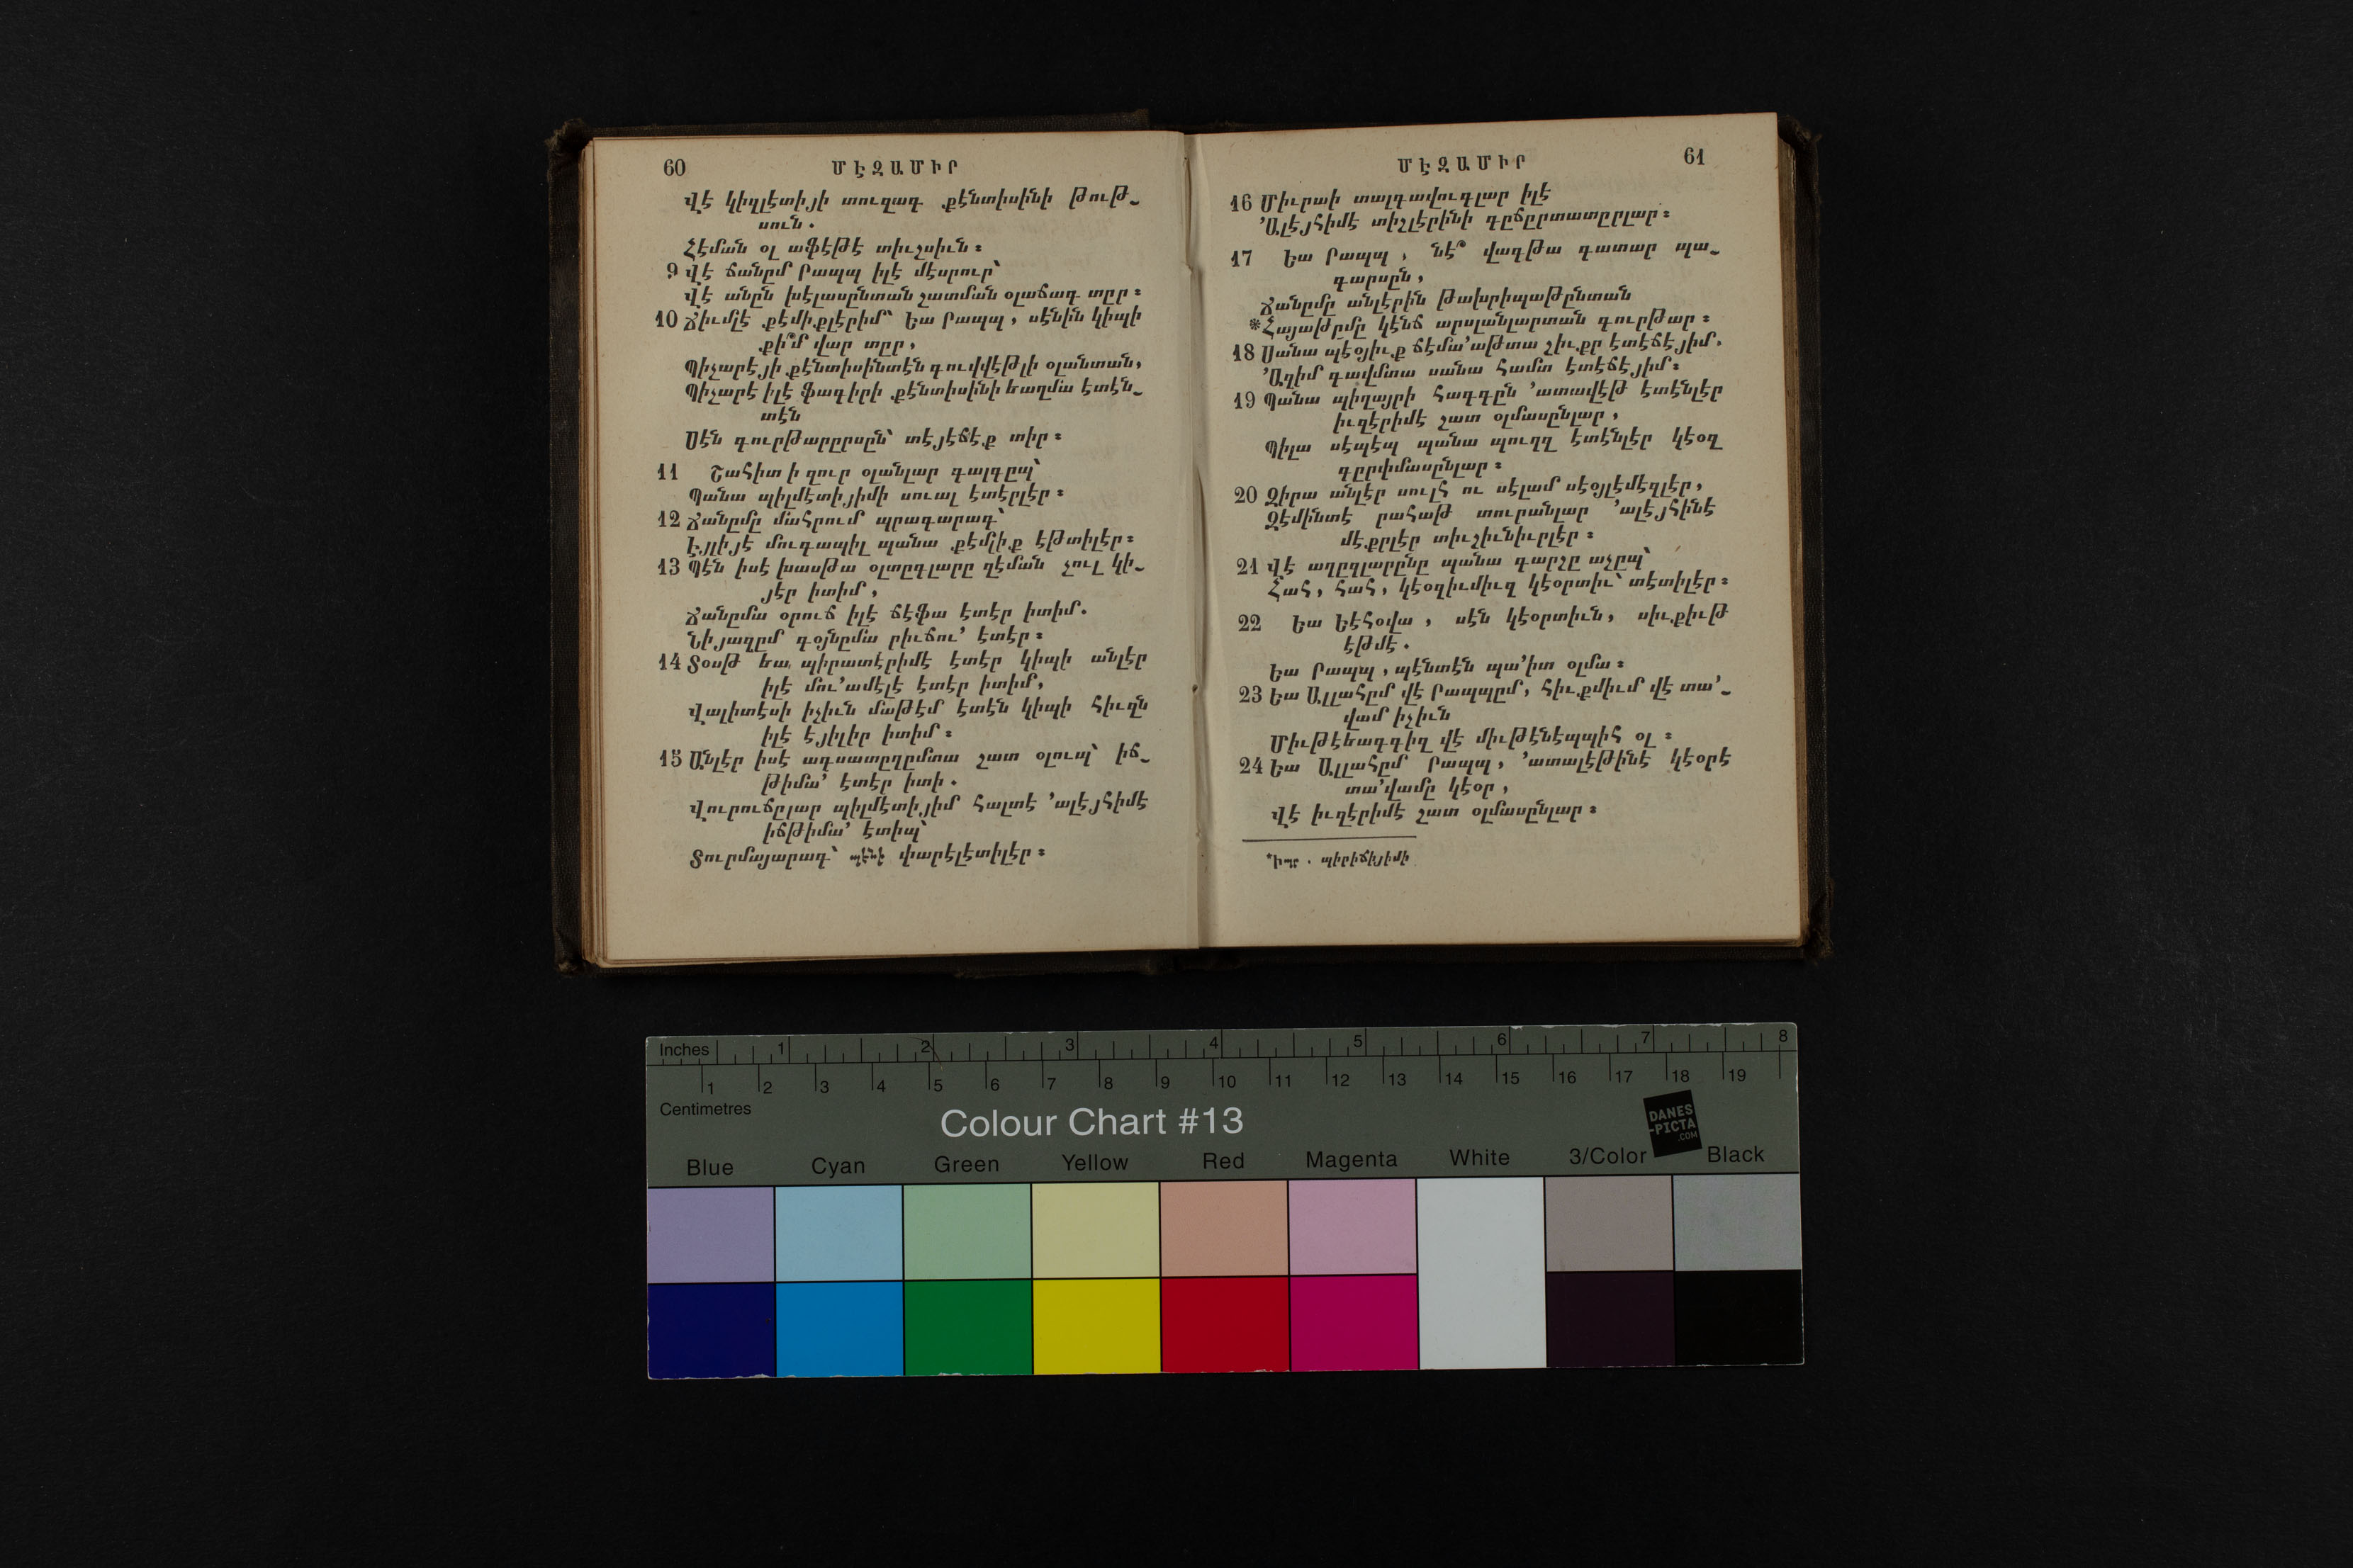 60
ՄԷԶԱՄԻՐ
Վէ կիզլէտիյի տուզագ քէնտիսինի թութ֊
սուն.
Հէման օլ աֆէթէ տիւշսիւն։
9 Վէ ճանըմ Րապպ իլէ մէսրուր՝
Վէ անըն խէլասընտան շատման օլաճագ տըր։
10 Ճիւմլէ քէմիքլէրիմ՝ Եա Րապպ, սէնին կիպի
քի՞մ վար տըր,
Պիչարէյի քէնտիսինտէն գուվվէթլի օլանտան,
Պիչարէ իլէ ֆագիրի քէնտիսինի եաղմա էտէն֊
տէն
Սէն գուրթարըրսըն՝ տէյէճէք տիր։
11 Շահիտ ի զուր օլանլար գալգըպ՝
Պանա պիլմէտիյիմի սուալ էտէրլէր։
12 Ճանըմը մահրում պրագարագ՝
Էյլիյէ մուգապիլ պանա քէմլիք էթտիլէր։
13 Պէն իսէ խասթա օլտըգլարը զէման չուլ կի֊
յէր իտիմ,
Ճանըմա օրուճ իլէ ճէֆա էտէր իտիմ.
Նիյազըմ գօյնըմա րիւճու՚ էտէր։
14 Տօսթ եա պիրատէրիմէ էտէր կիպի անլէր
իլէ մու՚ամէլէ էտէր իտիմ,
Վալիտէսի իչիւն մաթէմ էտէն կիպի հիւզն
իլէ էյիլիր իտիմ։
15 Անլէր իսէ ագսատըղըմտա շատ օլուպ՝ իճ֊
թիմա՚ էտէր իտի.
Վուրուճըլար պիլմէտիյիմ հալտէ ՚ալէյհիմէ
իճթիմա՚ էտիպ՝
Տուրմայարագ՝ պէնի փարէլէտիլէր։
ՄԷԶԱՄԻՐ
61
16 Միւրաի տալգավուգլար իլէ
՚Ալէյհիմէ տիշլէրինի գըճըրտատըրլար։
17 Եա Րապպ, նէ՞ վագթա գատար պա֊
գարսըն,
Ճանըմը անլէրին թախրիպաթընտան
*Հայաթըմը կէնճ արսլանլարտան գուրթար։
18 Սանա պէօյիւք ճէմա՚աթտա շիւքր էտէճէյիմ.
՚Ազիմ գավմտա սանա համտ էտէճէյիմ։
19 Պանա պիղայրի հագգըն ՚ատավէթ էտէնլէր
իւզէրիմէ շատ օլմասընլար,
Պիլա սէպէպ պանա պուղզ էտէնլէր կէօզ
գըրփմասընլար։
20 Զիրա անլէր սուլհ ու սէլամ սէօյլէմէզլէր,
Զէմինտէ րահաթ տուրանլար ՚ալէյհինէ
մէքրլէր տիւշիւնիւրլէր։
21 Վէ աղըզլարընը պանա գարշը աչըպ՝
Հահ, հահ, կէօզիւմիւզ կէօրտիւ՝ տէտիլէր։
22 Եա Եէհօվա, սէն կէօրտիւն, սիւքիւթ
էթմէ.
Եա Րապպ, պէնտէն պա՚իտ օլմա։
23 Եա Ալլահըմ վէ Րապպըմ, հիւքմիւմ վէ տա՚֊
վամ իչիւն
Միւթէեագգիզ վէ միւթէնէպպիհ օլ։
24 Եա Ալլահըմ Րապպ, ՚ատալէթինէ կէօրէ
տա՚վամը կէօր,
Վէ իւզէրիմէ շատ օլմասընլար։
*Իպր. պիրիճիյիմի
Inches 1 2 3 4 5 6 7 8
1 2 3 4 5 6 7 8 9 10 11 12 13 14 15 16 17 18 19
Centimetres
Colour Chart #13
DANES
-PICTA
.COM
Blue Cyan Green Yellow Red Magenta White 3/Color Black